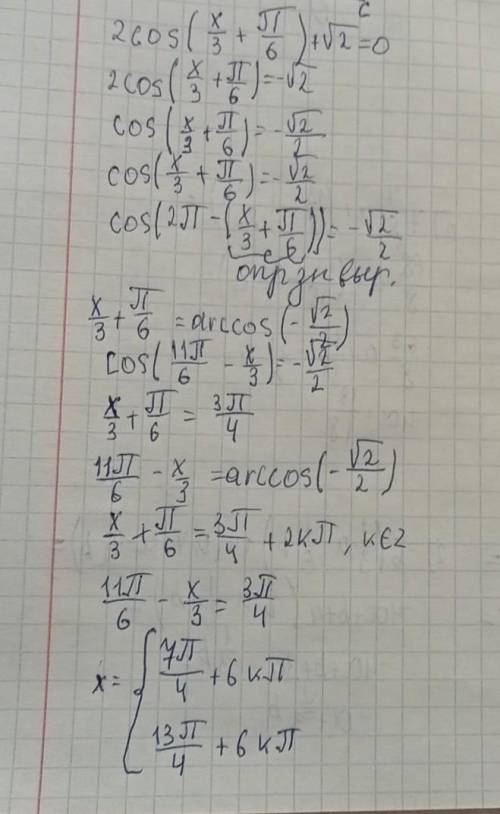 c
2cos(x/3 + π/6) + √2 = 0
2cos(x/3 + π/6) = -√2
cos(x/3 + π/6) = -√2/2
cos(x/3 + π/6) = -√2/2
cos(2π - (x/3 + π/6)) = -√2/2
опр зн выр.
x/3 + π/6 = arccos(-√2/2)
cos(11π/6 - x/3) = -√2/2
x/3 + π/6 = 3π/4
11π/6 - x/3 = arccos(-√2/2)
x/3 + π/6 = 3π/4 + 2кπ, к∈z
11π/6 - x/3 = 3π/4
x = { 7π/4 + 6кπ
13π/4 + 6кπ